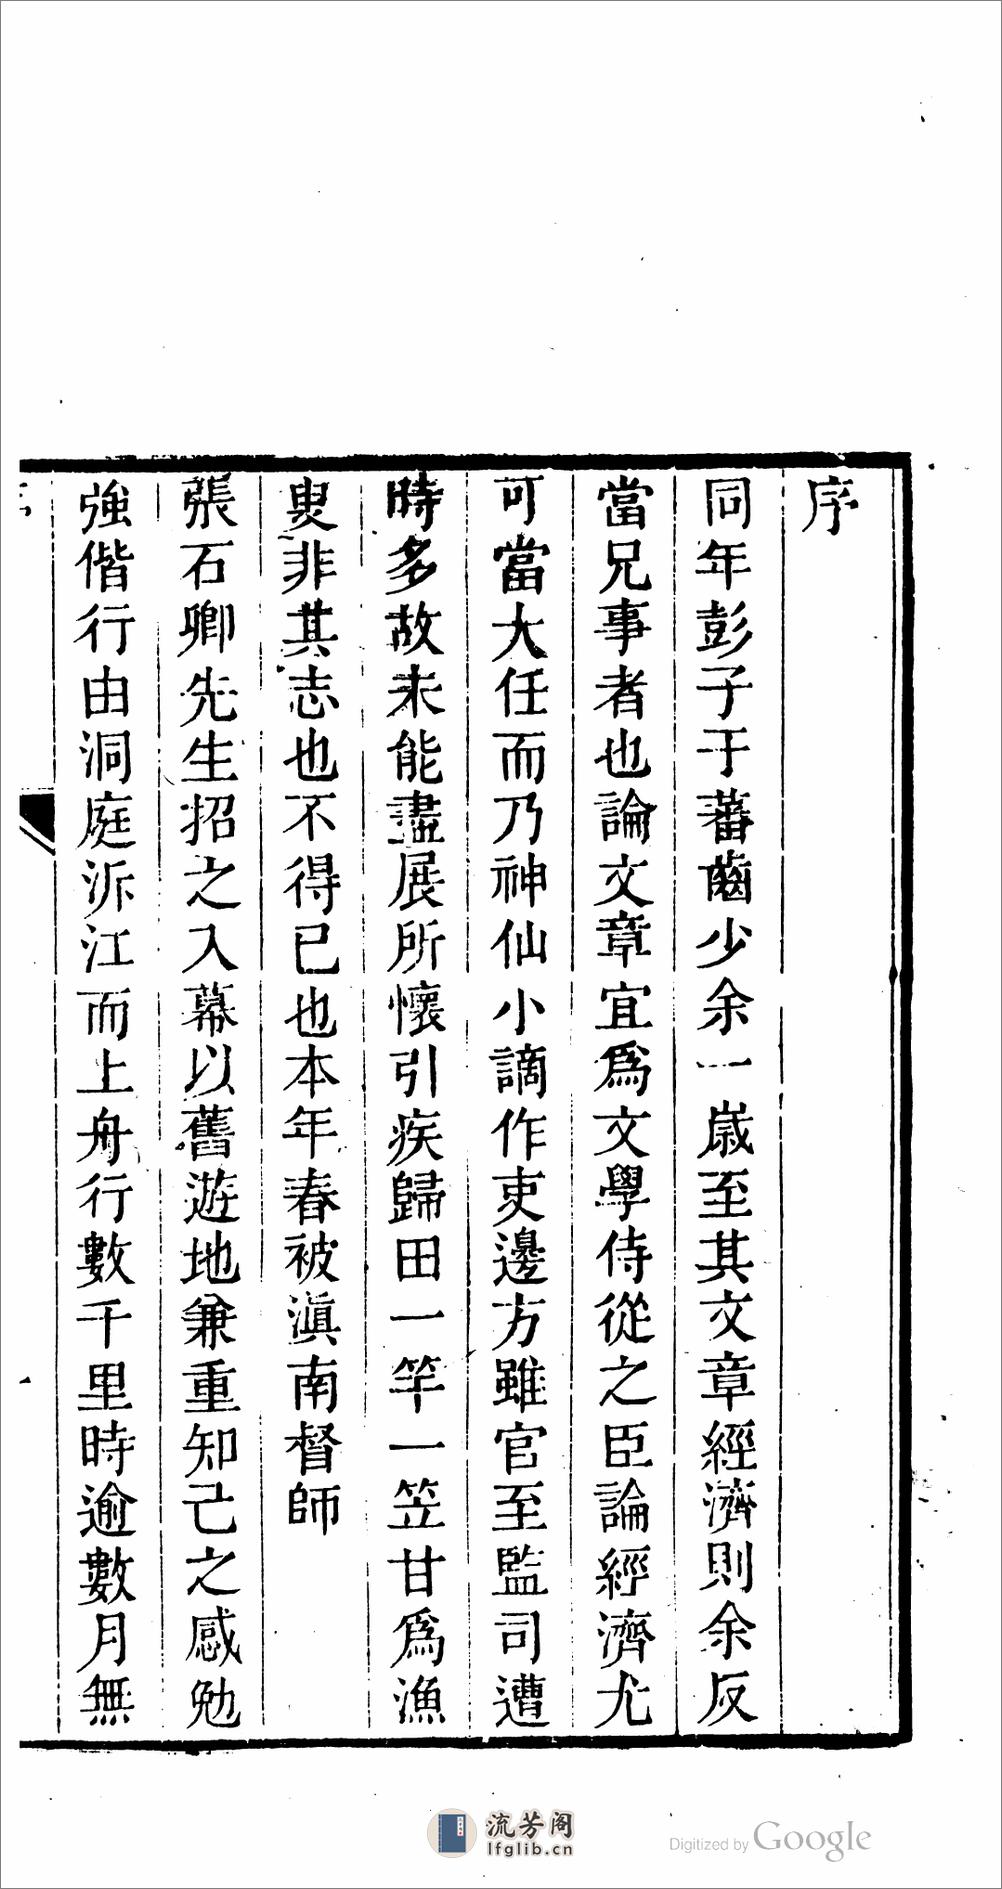 序
同年彭子于蕃齒少余一歲至其文章經濟則余反
當兄事者也論文章宜爲文學侍從之臣論經濟尤
可當大任而乃神仙小謫作吏邊方雖官至監司遭
時多故未能盡展所懷引疾歸田一竿一笠甘爲漁
叟非其志也不得已也本年春被滇南督師
張石卿先生招之入幕以舊遊地兼重知己之感勉
強偕行由洞庭泝江而上舟行數千里時逾數月無
流芳阁
lfglib.cn
Digitized by Google